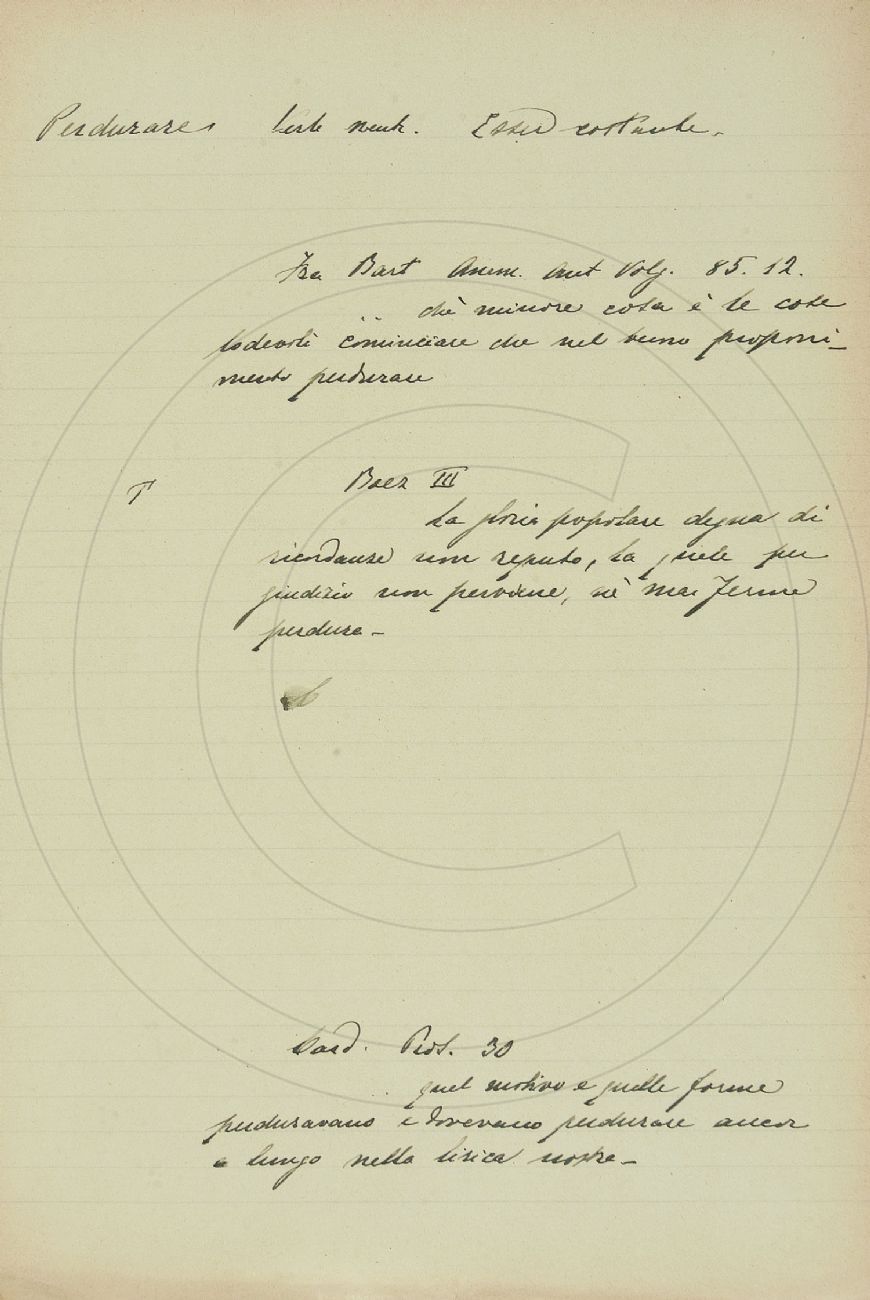 Perdurare verb neut. Esser costante.
Fra Bart Amm. Ant Volg. 85. 12.
.. chè minore cosa è le cose
lodevoli cominciare che nel buono proponi-
mento perdurare
T
Boez III
La gloria popolare degna di
ricordanza non reputo, la quale per
giudizio non perviene, nè mai ferma
perdura -
Card. Pros. 30
quel motivo e quelle forme
perduravano e dovevano perdurare ancor
a lungo nella lirica nostra -